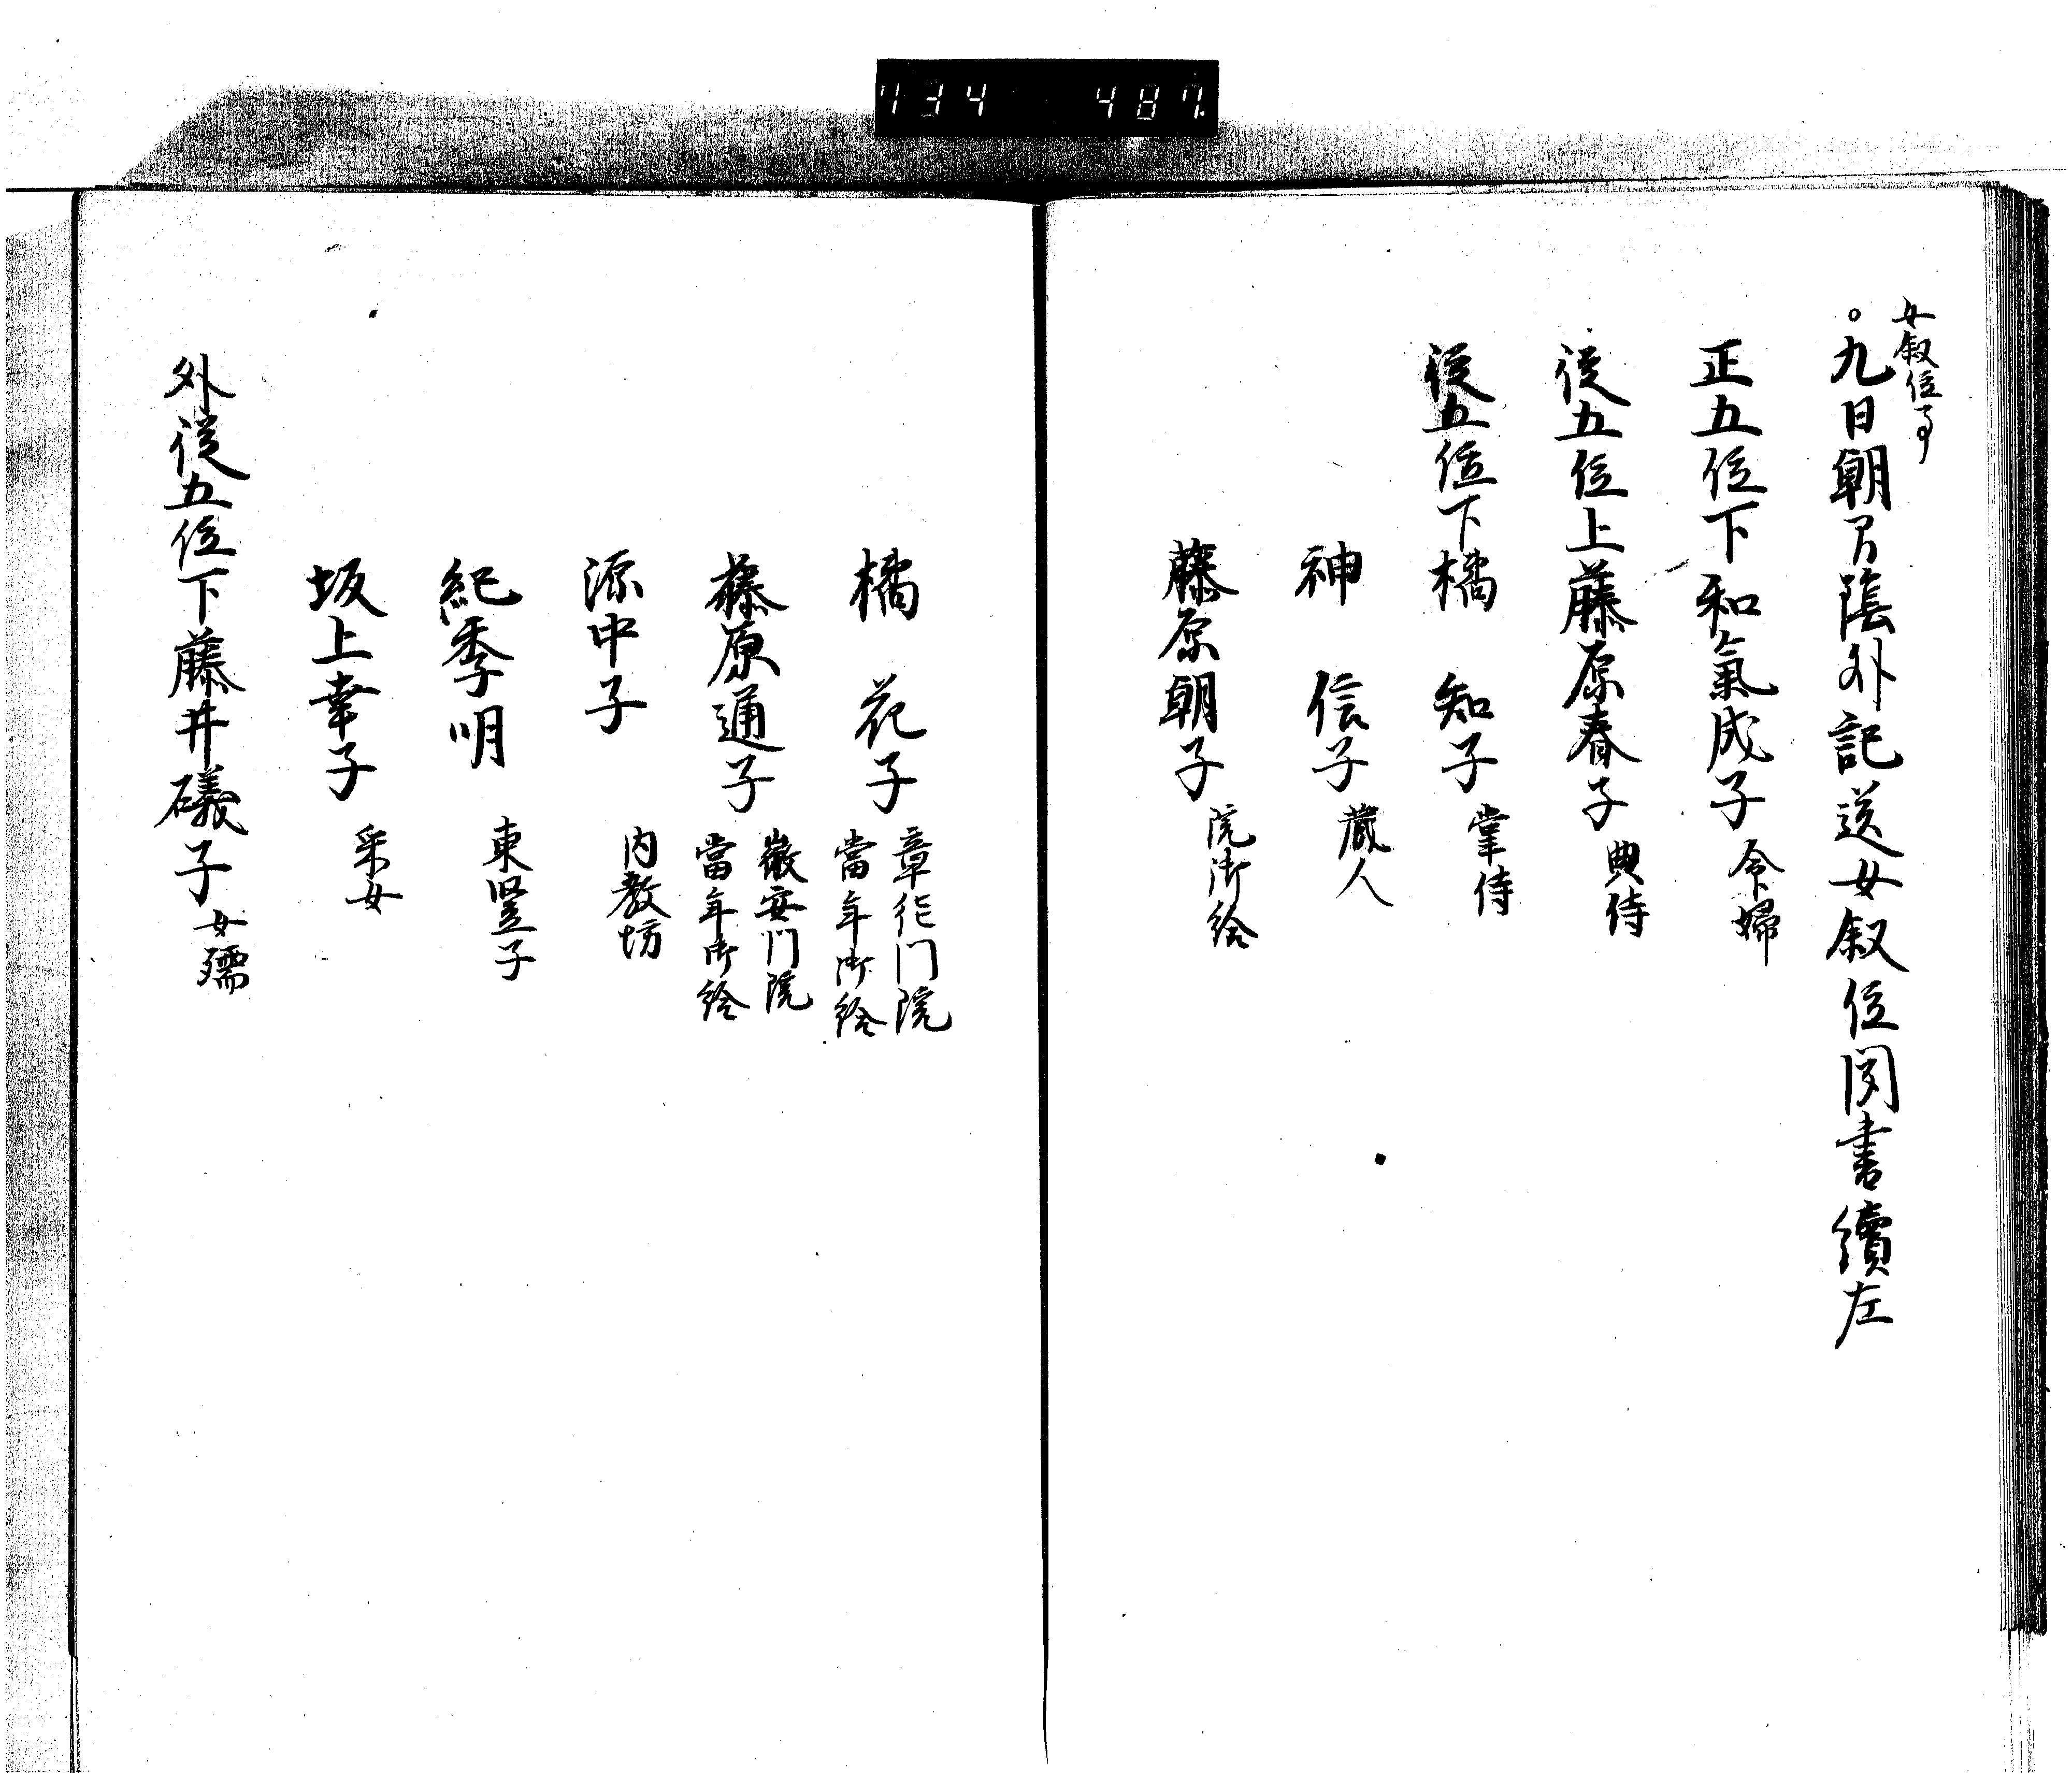 734 487
女叙位事
。九日朝間陰外記送女叙位聞書續左
正五位下和氣成子 令婦
従五位上藤原春子 典侍
従五位下橘 知子 掌侍
神 信子 蔵人
藤原朝子 院御給
橘 花子 章徳門院當年御給
藤原通子 徽安門院當年御給
源中子 内教坊
紀季明 東竪子
坂上幸子 采女
外従五位下藤井礒子 女孺